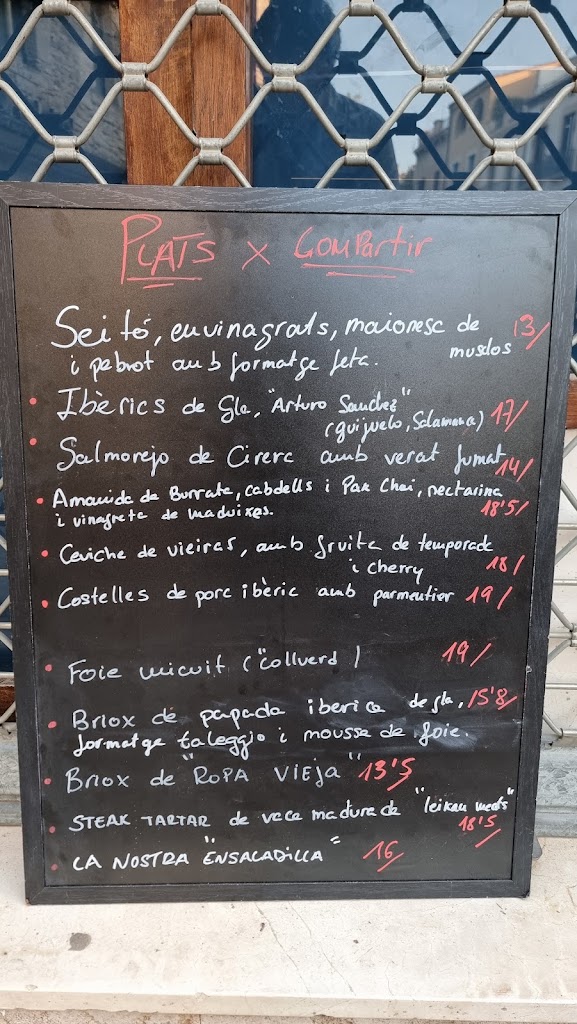 PLATS x COMPARTIR
Seitó, envinagrats, maionesa de 13/
musclos
i pebrot amb formatge feta.
• Ibèrics de Gla, "Arturo Sanchez" 17/
(guijuelo, Salamanca)
• Salmorejo de Cirera amb verat fumat 14/
• Amanida de Burrata, cabdells i Pak Choi, nectarina
i vinagreta de maduixes. 18'5/
• Ceviche de vieires, amb fruita de temporada
i cherry 18/
• Costelles de porc ibèric amb parmentier 19/
• Foie micuit ("Collverd) 19/
• Briox de papada iberica de gla, 15'8/
formatge taleggio i mousse de foie.
• Briox de "ROPA VIEJA" 13'5
• STEAK TARTAR de vaca madurada "leikau meats"
18'5/
• LA NOSTRA "ENSALADILLA" 16/